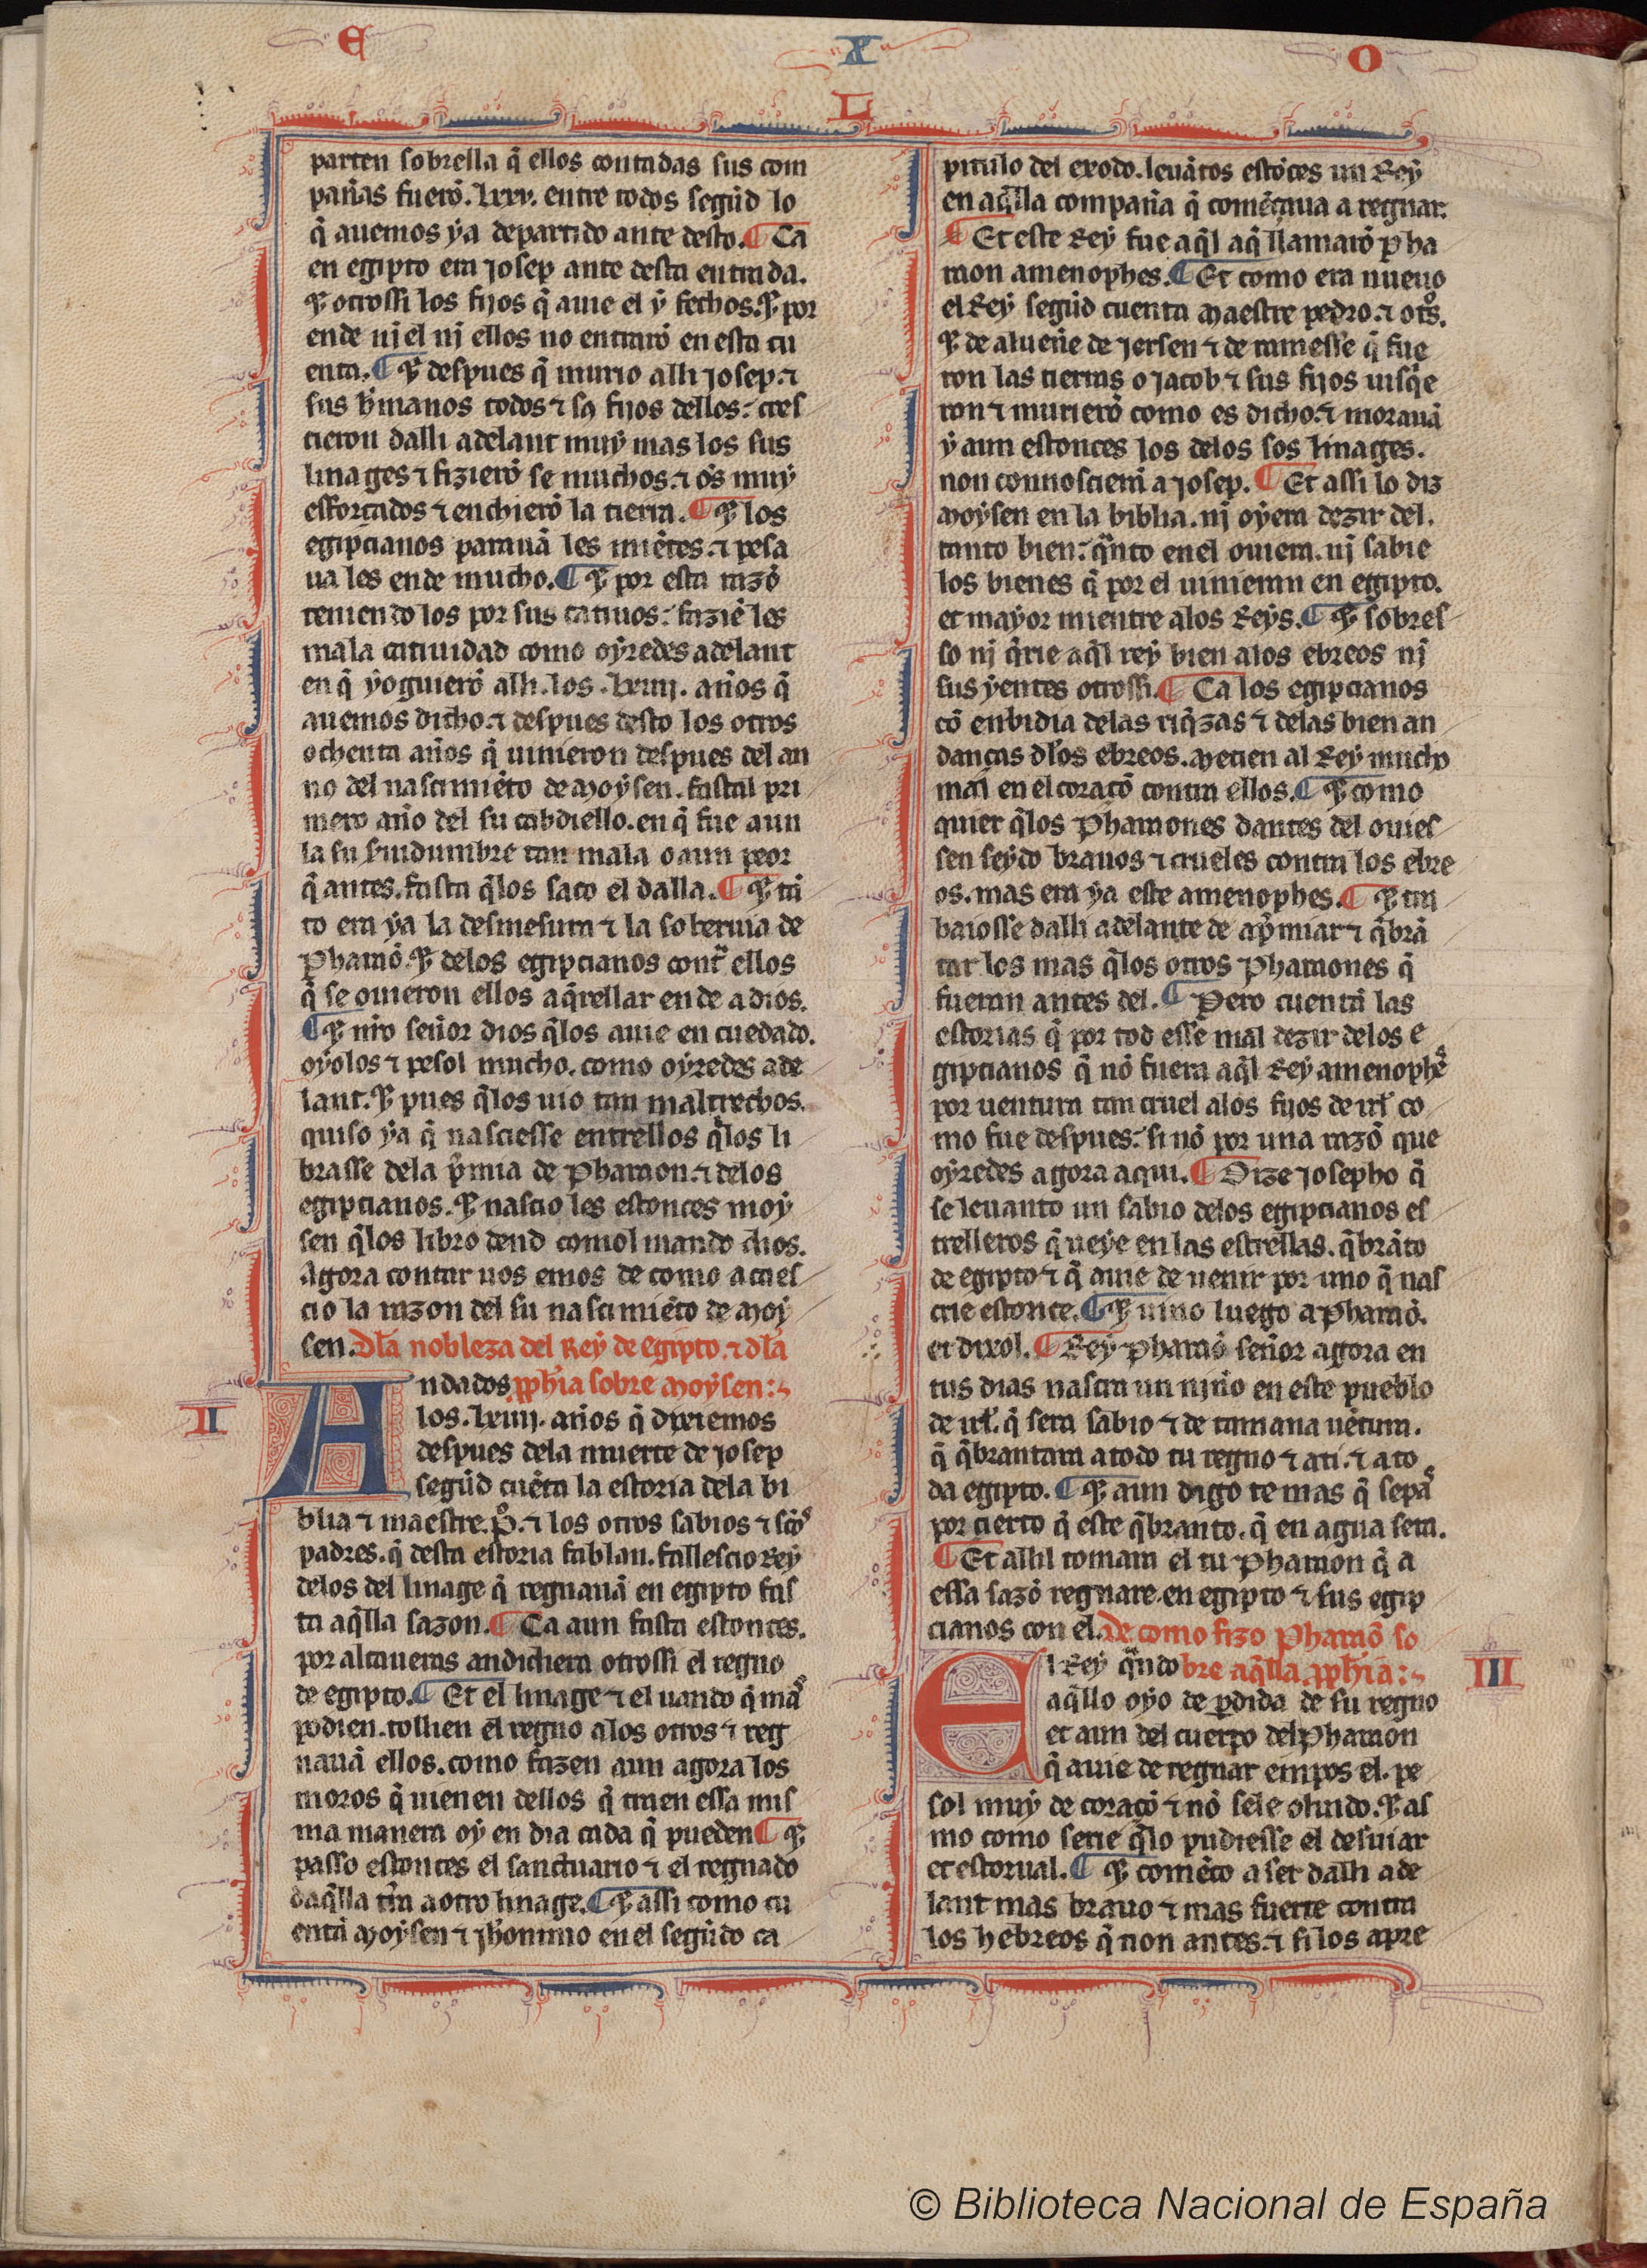 E X O
L
parten sobrella q̃ ellos contadas sus com
pañas fuerõ. lxxv. entre todos segũd lo
q̃ auemos ya departido ante desto. ¶ Ca
en egipto era josep ante desta entrada.
⁊ otrossi los fijos q̃ auie el y fechos. ⁊ por
ende nj el nj ellos no entrarõ en esta cu
enta. ¶ ⁊ despues q̃ murio alli josep. ⁊
sus h̃manos todos ⁊ fijos dellos: cres
cieron dalli adelant muy mas los sus
linages ⁊ fizierõ se muchos. ⁊ oẽs muy
efforçados ⁊ enchierõ la tierra. ¶ ⁊ los
egipcianos parauã les miẽtes. ⁊ pesa
ua les ende mucho. ¶ ⁊ por esta razõ
teniendo los por sus catiuos: faziẽ les
mala catiuidad como oyredes adelant
en q̃ yoguierõ alli. los. lxiiij. años q̃
auemos dicho. ⁊ despues desto los otros
ochenta años q̃ uinieron despues del an
no del nascimiẽto de Moysen. fastal pri
mero año del su cabdiello. en q̃ fue aun
la su s̃uidumbre tan mala o aun peor
q̃ antes. fasta q̃los saco el dalla. ¶ ⁊ tã
to era ya la desmesura ⁊ la soberuia de
Pharaõ. ⁊ delos egipcianos cont̃ ellos
q̃ se ouieron ellos a q̃rellar ende a dios.
¶ ⁊ nr̃o señor dios q̃los auie en cuedado.
oyolos ⁊ pesol mucho. como oyredes ade
lant. ⁊ pues q̃los uio tan maltrechos.
quiso ya q̃ nasciesse entrellos q̃los li
brasse dela p̃mia de Pharaon. ⁊ delos
egipcianos. ⁊ nascio les estonces moy
sen q̃los libro dend comol mando dios.
Agora contar uos emos de como acaes
cio la razon del su nascimiẽto de Moy
sen. Dla nobleza del Rey de egipto. ⁊ dla
II
Andados pph̃ia sobre Moysen:
los. lxiiij. años q̃ dixiemos
despues dela muerte de josep
segũd cuẽta la estoria dela bi
blia ⁊ maestre. P̊. ⁊ los otros sabios ⁊ sc̃os
padres. q̃ desta estoria fablan. fallescio Rey
delos del linage q̃ regnauã en egipto fas
ta aq̃lla sazon. ¶ Ca aun fasta estonces.
por alcaueras andichera otrossi el regno
de egipto. ¶ Et el linage ⁊ el uando q̃ mas
podien. tollien el regno alos otros ⁊ reg
nauã ellos. como fazen aun agora los
moros q̃ uienen dellos q̃ traen essa mis
ma manera oy en dia cada q̃ pueden ¶ ⁊
passo estonces el sanctuario ⁊ el regnado
daq̃lla tr̃ra a otro linage. ¶ ⁊ assi como cu
entã Moysen ⁊ jh̃onimo en el segũdo ca
pitulo del exodo. leuãtos estõces un Rey
en aq̃lla compaña q̃ comẽçaua a regnar.
¶ Et este Rey fue aq̃l aq̃ llamarõ pha
raon amenophes. ¶ Et como era nueuo
el Rey segũd cuenta Maestre pedro. ⁊ otr̃os.
⁊ de alueñe de jersen ⁊ de ramesse q̃ fue
ron las tierras o jacob ⁊ sus fijos uisq̃e
ron ⁊ murierõ como es dicho. ⁊ morauã
y aun estonces los delos sos linages.
non connoscierã a josep. ¶ Et assi lo diz
Moysen en la biblia. nj oyera dezir del.
tanto bien: q̃nto en el ouiera. nj sabie
los bienes q̃ por el uinieran en egipto.
et mayor mientre alos Reys. ¶ ⁊ sobres
so nj q̃rie aq̃l rey bien alos ebreos nj
sus yentes otrossi. ¶ Ca los egipcianos
cõ enbidia delas riq̃zas ⁊ delas bien an
danças dl̃os ebreos. Metien al Rey mucho
mal en el coraçõ contra ellos. ¶ ⁊ como
quier q̃los Pharaones dantes del ouies
sen seydo brauos ⁊ crueles contra los ebre
os. mas era ya este amenophes. ¶ ⁊ tra
baiosse dalli adelante de ap̃miar ⁊ q̃brã
tar los mas q̃los otros Pharaones q̃
fueran antes del. ¶ Pero cuentã las
estorias q̃ por tod esse mal dezir delos e
gipcianos q̃ nõ fuera aq̃l Rey amenophes
por uentura tan cruel alos fijos de irl̃ co
mo fue despues: si nõ por una razõ que
oyredes agora aqui. ¶ Dize josepho q̃
se leuanto un sabio delos egipcianos es
trelleros q̃ ueye en las estrellas. q̃brãto
de egipto ⁊ q̃ auie de uenir por uno q̃ nas
crie estonce. ¶ ⁊ uino luego a Pharaõ.
et dixol. ¶ Rey Pharaõ señor agora en
tus dias nascra un niño en este pueblo
de irl̃. q̃ sera sabio ⁊ de tamana uẽtura.
q̃ q̃brantara a todo tu regno ⁊ a ti. ⁊ a to
da egipto. ¶ ⁊ aun digo te mas q̃ sepas
por cierto q̃ este q̃branto. q̃ en agua sera.
¶ Et allil tomara el tu Pharaon q̃ a
essa sazõ regnare. en egipto ⁊ sus egip
cianos con el. De como fizo Pharaõ so
III
El Rey q̃ndo bre aq̃lla pph̃ia:
aq̃llo oyo de p̃dida de su regno
et aun del cuerpo del Pharaon
q̃ auie de regnar empos el. pe
sol muy de coraçõ ⁊ nõ sele oluido. ⁊ as
mo como serie q̃lo pudiesse el desuiar
et estorual. ¶ ⁊ comẽço a ser dalli ade
lant mas brauo ⁊ mas fuerte contra
los hebreos q̃ non antes. ⁊ si los apre
© Biblioteca Nacional de España